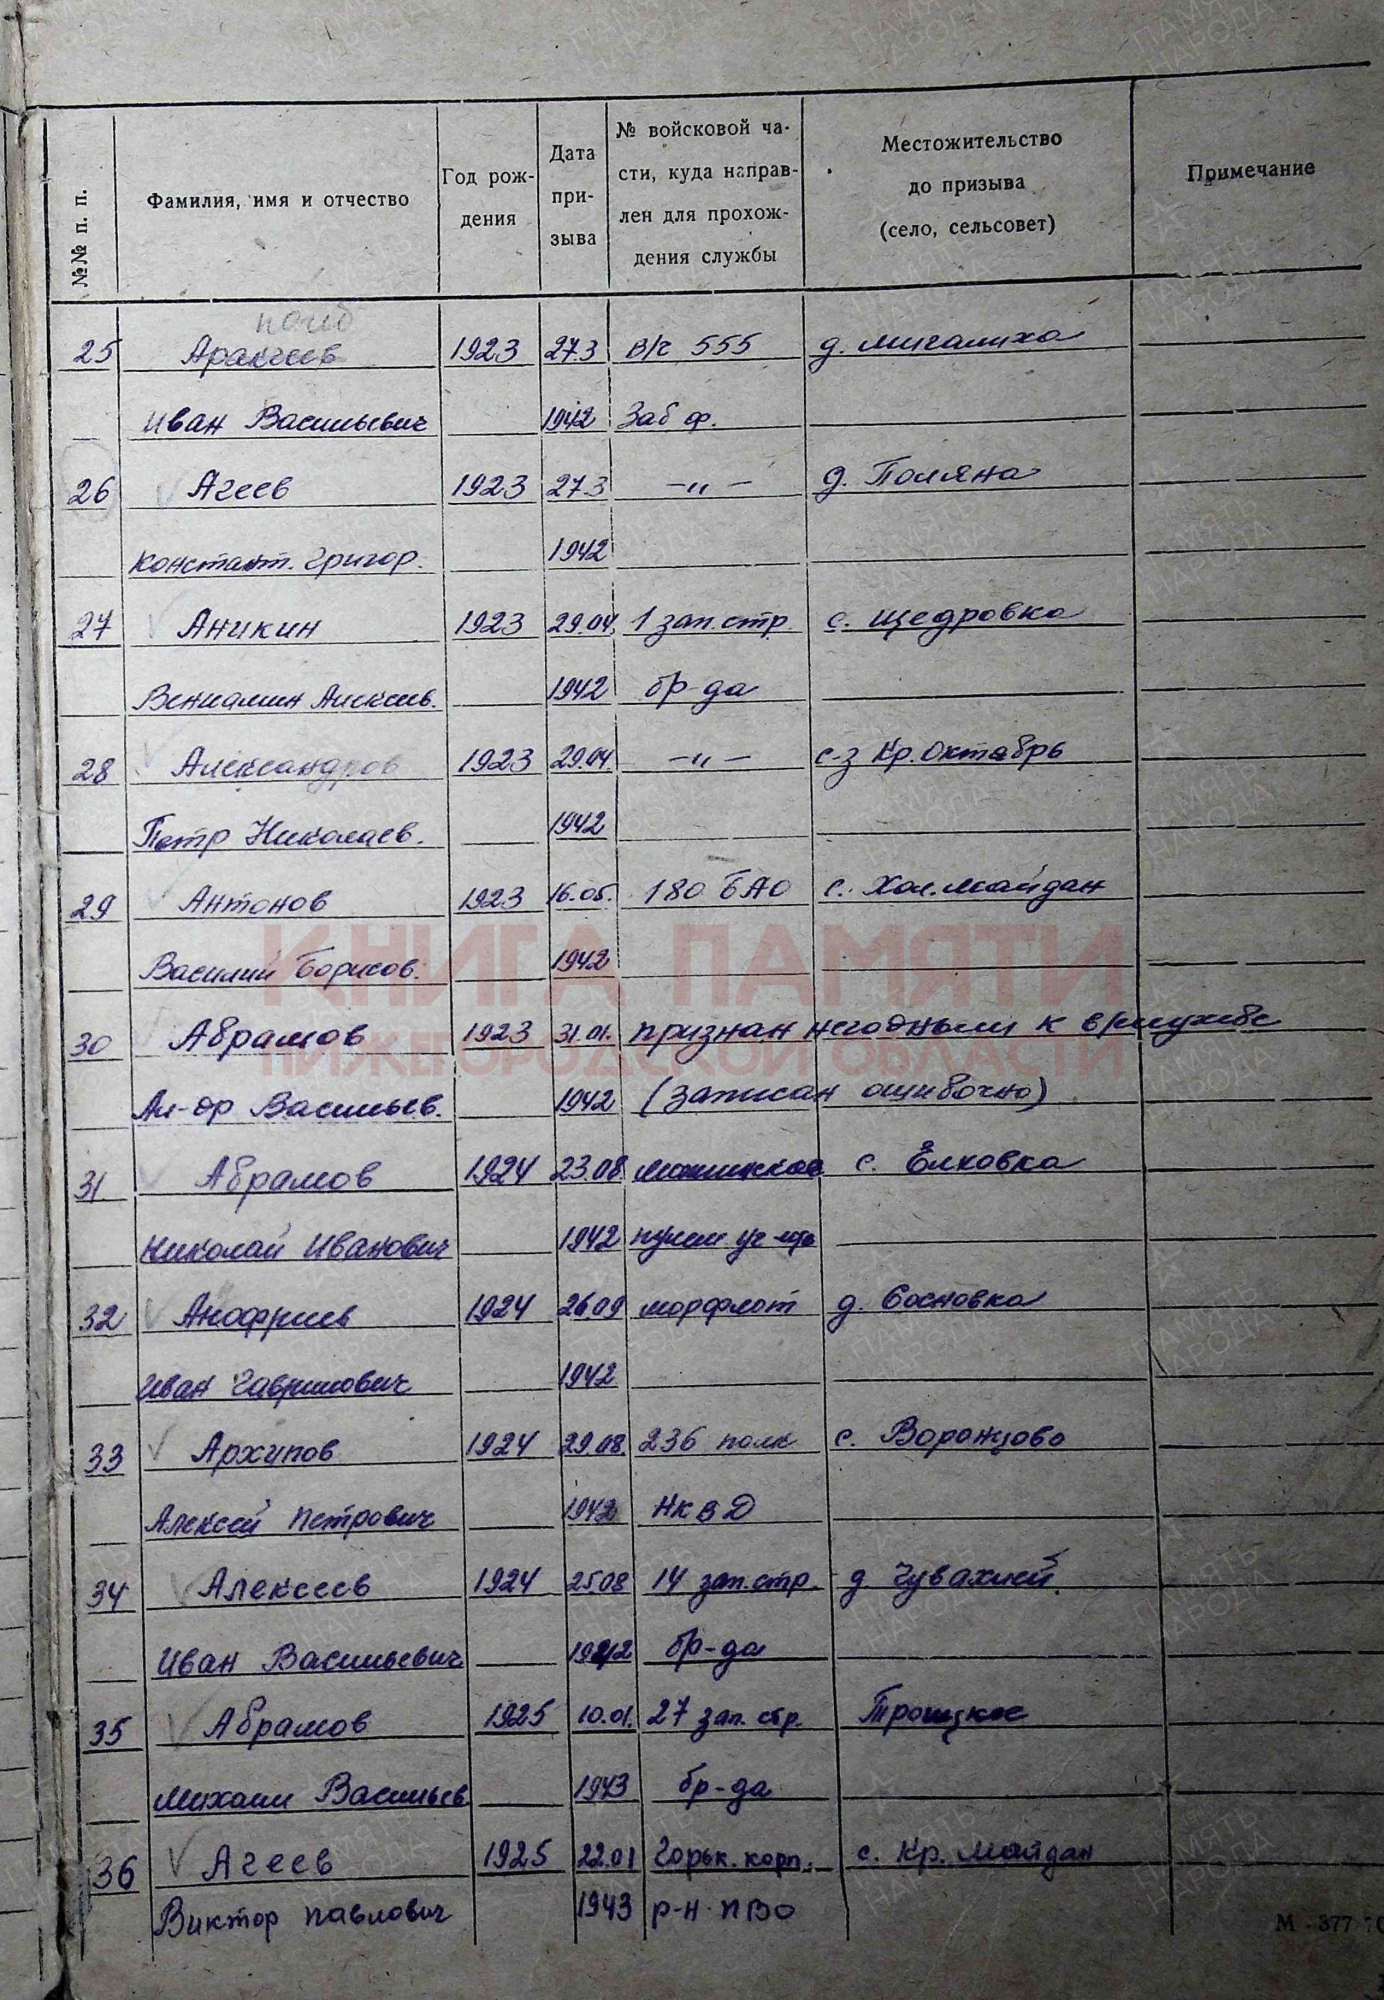 №№ п. п.
Фамилия, имя и отчество
Год рож-
дения
Дата
при-
зыва
№ войсковой ча-
сти, куда направ-
лен для прохож-
дения службы
Местожительство
до призыва
(село, сельсовет)
Примечание
погиб
25 Аракчеев 1923 27.3 в/ч 555 д. Мигалиха
Иван Васильевич 1942 Заб ф.
26 Агеев 1923 27.3 —„— д. Поляна
Констант. Григор. 1942
27 Аникин 1923 29.04. 1 зап. стр. с. Щедровка
Вениамин Алексеев. 1942 бр-да
28 Александров 1923 29.04 —„— с-з Кр. Октябрь
Петр Николаев. 1942
29 Антонов 1923 16.05. 180 БАО с. Хол. Майдан
Василий Борисов. 1942
30 Абрамов 1923 31.01. признан негодным к в/службе
Ал-др Васильев. 1942 (записан ошибочно)
31 Абрамов 1924 23.08. с. Ёлховка
Николай Иванович 1942 пулем. уч-ще
32 Анофриев 1924 26.09 морфлот д. Сосновка
Иван Гаврилович 1942
33 Архипов 1924 29.08. 236 полк с. Воронцово
Алексей Петрович 1942 НКВД
34 Алексеев 1924 25.08 14 зап. стр. д. Чувахлей.
Иван Васильевич 1942 бр-да
35 Абрамов 1925 10.01. 27 зап. стр. Троицкое
Михаил Васильев 1943 бр-да
36 Агеев 1925 22.01 Горьк. корп. с. Кр. Майдан
Виктор Павлович 1943 р-н ПВО
М - 377
КНИГА ПАМЯТИ
НИЖЕГОРОДСКОЙ ОБЛАСТИ
ПАМЯТЬ
НАРОДА